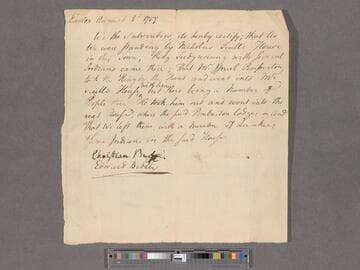 Easton August 2d 1757.
We the Subscribers, do hereby certify, that as
We were standing by Nicholas Scull's House
in this Town, Teedyuscung with several
Indians came there; that Mr. Israel Pemberton
took the King by the Hand and went into Mr.
Scull's House, but there being a Number of
People there He took him out and went into the
next House, where the said Pemberton lodges, and
that We left them with a Number of Quakers
Indians in the said House.
Christian
Edward Biddle